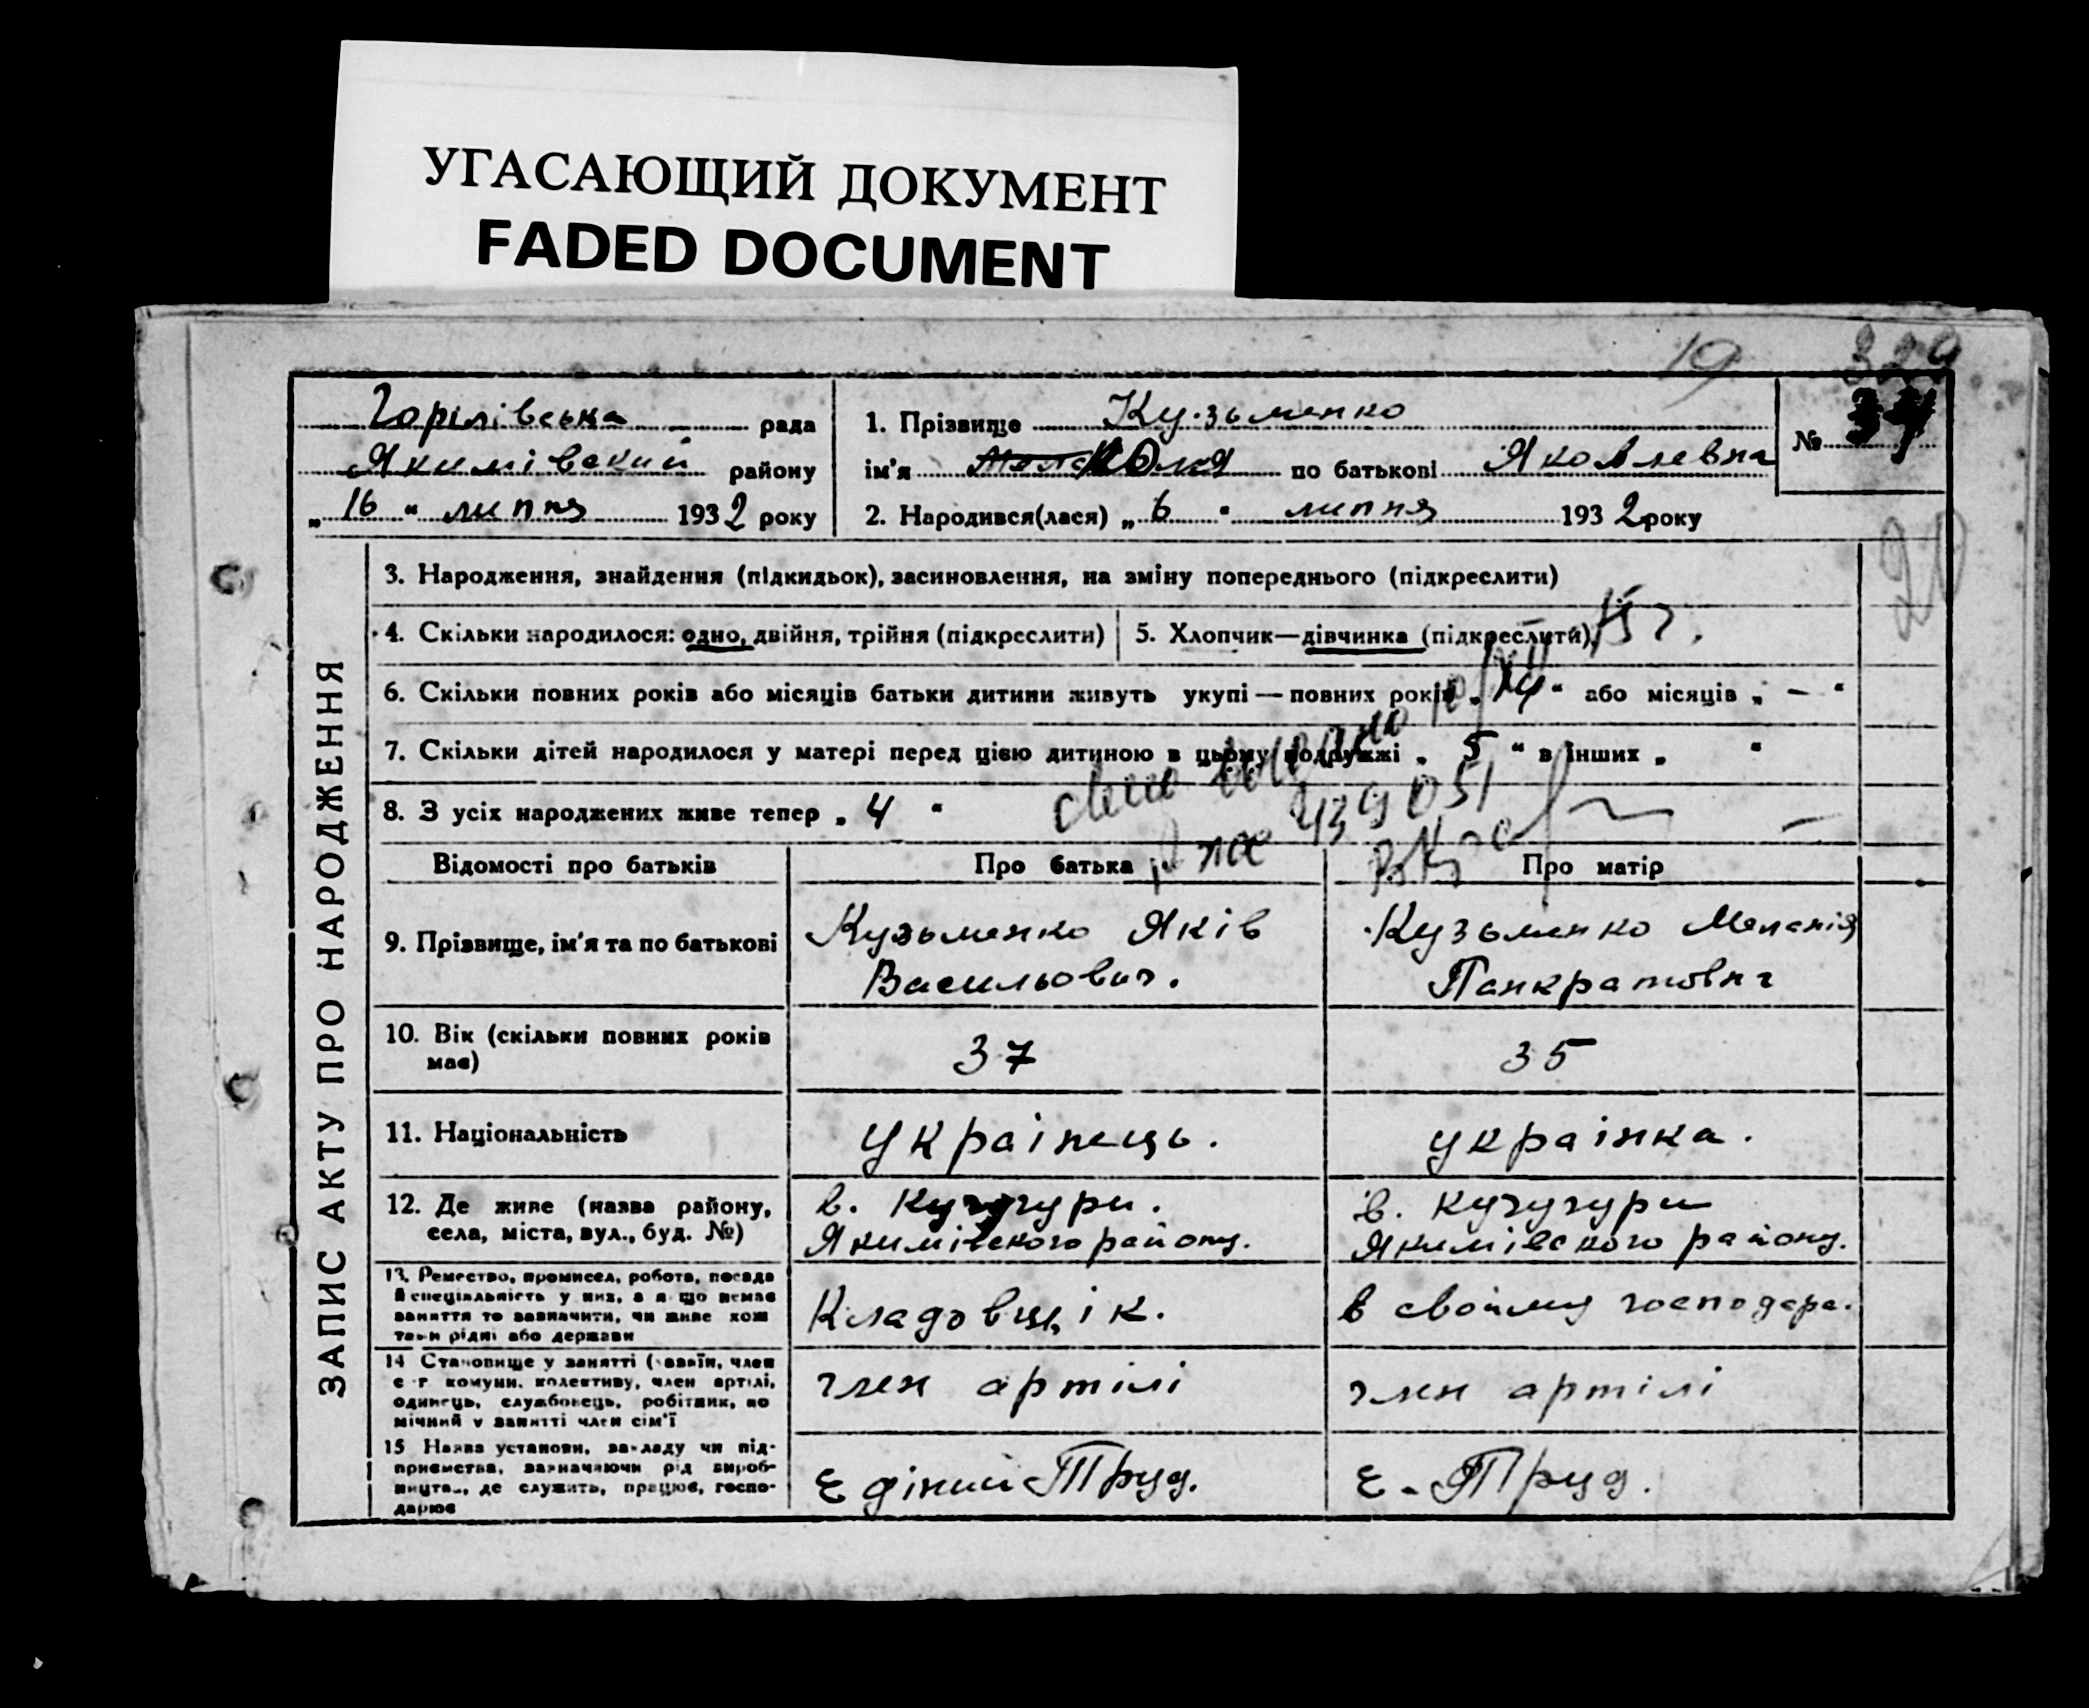 УГАСАЮЩИЙ ДОКУМЕНТ
FADED DOCUMENT
19
329
Горілівська рада
Якимівский району
„16“ липня 1932 року
1. Прізвище Кузьменко
ім'я Юлия по батькові Яковлевна
2. Народився(лася) „6“ липня 1932 року
№ 34
20
ЗАПИС АКТУ ПРО НАРОДЖЕННЯ
3. Народження, знайдення (підкидьок), засиновлення, на зміну попереднього (підкреслити)
4. Скільки народилося: одно, двійня, трійня (підкреслити)
5. Хлопчик—дівчинка (підкреслити)
6. Скільки повних років або місяців батьки дитини живуть укупі — повних років „14“ або місяців „ — “
7. Скільки дітей народилося у матері перед цією дитиною в цьому подружжі „ 5 “ в інших „ “
8. З усіх народжених живе тепер „ 4 “
439051
Відомості про батьків
Про батька
Про матір
9. Прізвище, ім'я та по батькові
Кузьменко Яків
Васильович.
Кузьменко Меланія
Панкратовна
10. Вік (скільки повних років
має)
37
35
11. Національність
Українець.
українка.
12. Де живе (назва району,
села, міста, вул., буд. №)
в. Кучугури.
Якимівского району.
в. Кучугури
Якимівского району.
13. Ремество, промисел, робота, посада
й спеціяльність у них, а якщо немає
заняття то зазначити, чи живе кош
тами рідні або держави
Кладовщік.
в своїму господара.
14 Становище у занятті (хазяїн, член
с-г комуни, колективу, член артілі,
одинець, службовець, робітник, по
мічний у занятті член сім'ї
член артілі
член артілі
15 Назва установи, закладу чи під-
приємства, зазначаючи рід вироб-
ництва, де служить, працює, госпо-
дарює
Єдіний Труд.
Є. Труд.